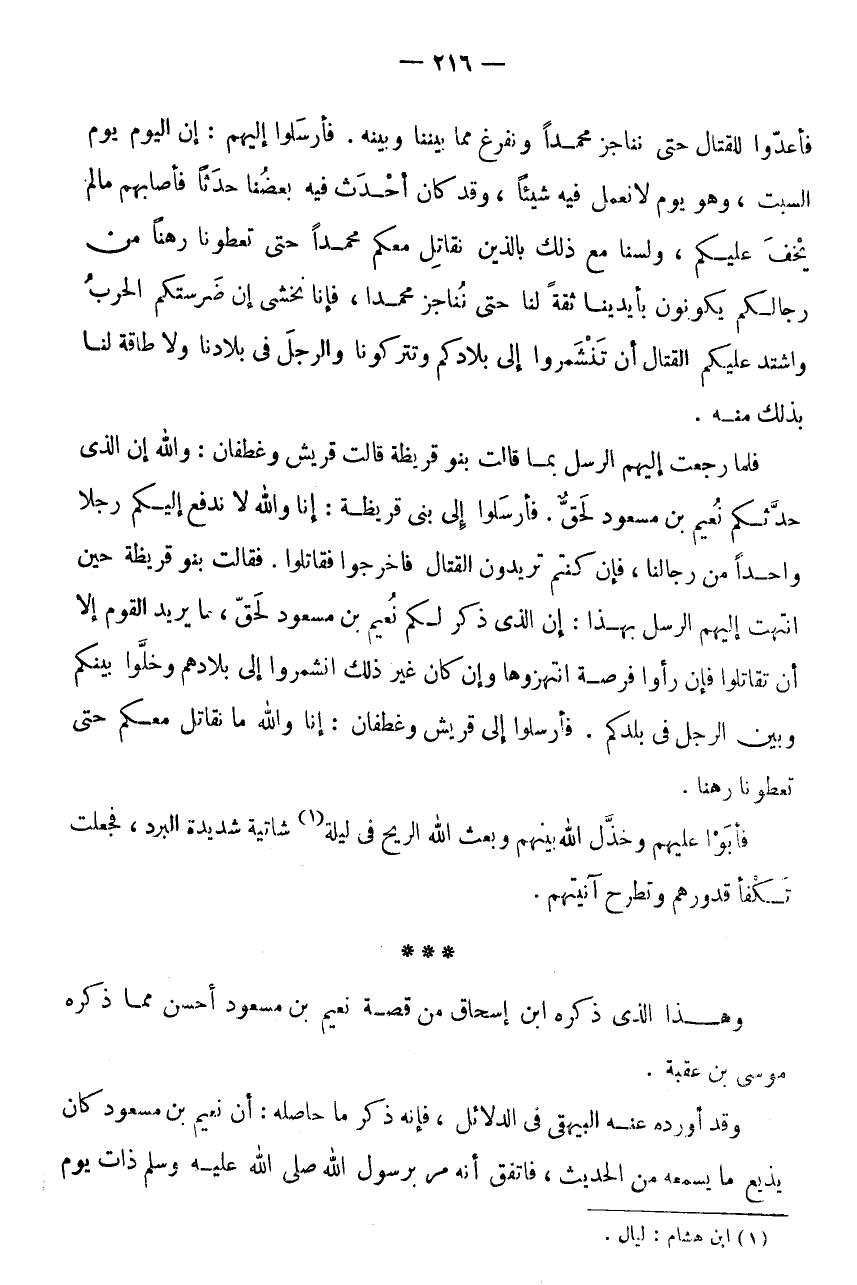 — ٢١٦ —
فأعدّوا للقتال حتى نناجز محمداً ونفرغ مما بيننا وبينه . فأرسَلوا إليهم : إن اليوم يوم
السبت ، وهو يوم لانعمل فيه شيئاً ، وقد كان أحْدَث فيه بعضُنا حدَثاً فأصابهم مالم
يَخْفَ عليكم ، ولسنا مع ذلك بالذين نقاتل معكم محمداً حتى تعطونا رهناً من
رجالكم يكونون بأيدينا ثقةً لنا حتى نُناجز محمدا ، فإنا نخشى إن ضَرستكم الحربُ
واشتد عليكم القتال أن تَنْشَمروا إلى بلادكم وتتركونا والرجلَ فى بلادنا ولا طاقة لنا
بذلك منه .
فلما رجعت إليهم الرسل بما قالت بنو قريظة قالت قريش وغطفان : والله إن الذى
حدَّثكم نُعيم بن مسعود لَحَقٌّ . فأرسَلوا إلى بنى قريظة : إنا والله لا ندفع إليكم رجلا
واحداً من رجالنا ، فإن كنتم تريدون القتال فاخرجوا فقاتلوا . فقالت بنو قريظة حين
انتهت إليهم الرسل بهذا : إن الذى ذكر لكم نُعيم بن مسعود لَحَقّ ، ما يريد القوم إلا
أن تقاتلوا فإن رأوا فرصة انتهزوها وإن كان غير ذلك انشمروا إلى بلادهم وخلَّوا بينكم
وبين الرجل فى بلدكم . فأرسلوا إلى قريش وغطفان : إنا والله ما نقاتل معكم حتى
تعطونا رهنا .
فأبَوْا عليهم وخذَّل الله بينهم وبعث الله الريح فى ليلة(١) شاتية شديدة البرد ، فجعلت
تَكْفأ قدورهم وتطرح آنيتهم .
***
وهذا الذى ذكره ابن إسحاق من قصة نعيم بن مسعود أحسن مما ذكره
موسى بن عقبة .
وقد أورده عنه البيهقى فى الدلائل ، فإنه ذكر ما حاصله : أن نعيم بن مسعود كان
يذيع ما يسمعه من الحديث ، فاتفق أنه مر برسول الله صلى الله عليه وسلم ذات يوم
(١) ابن هشام : ليال .